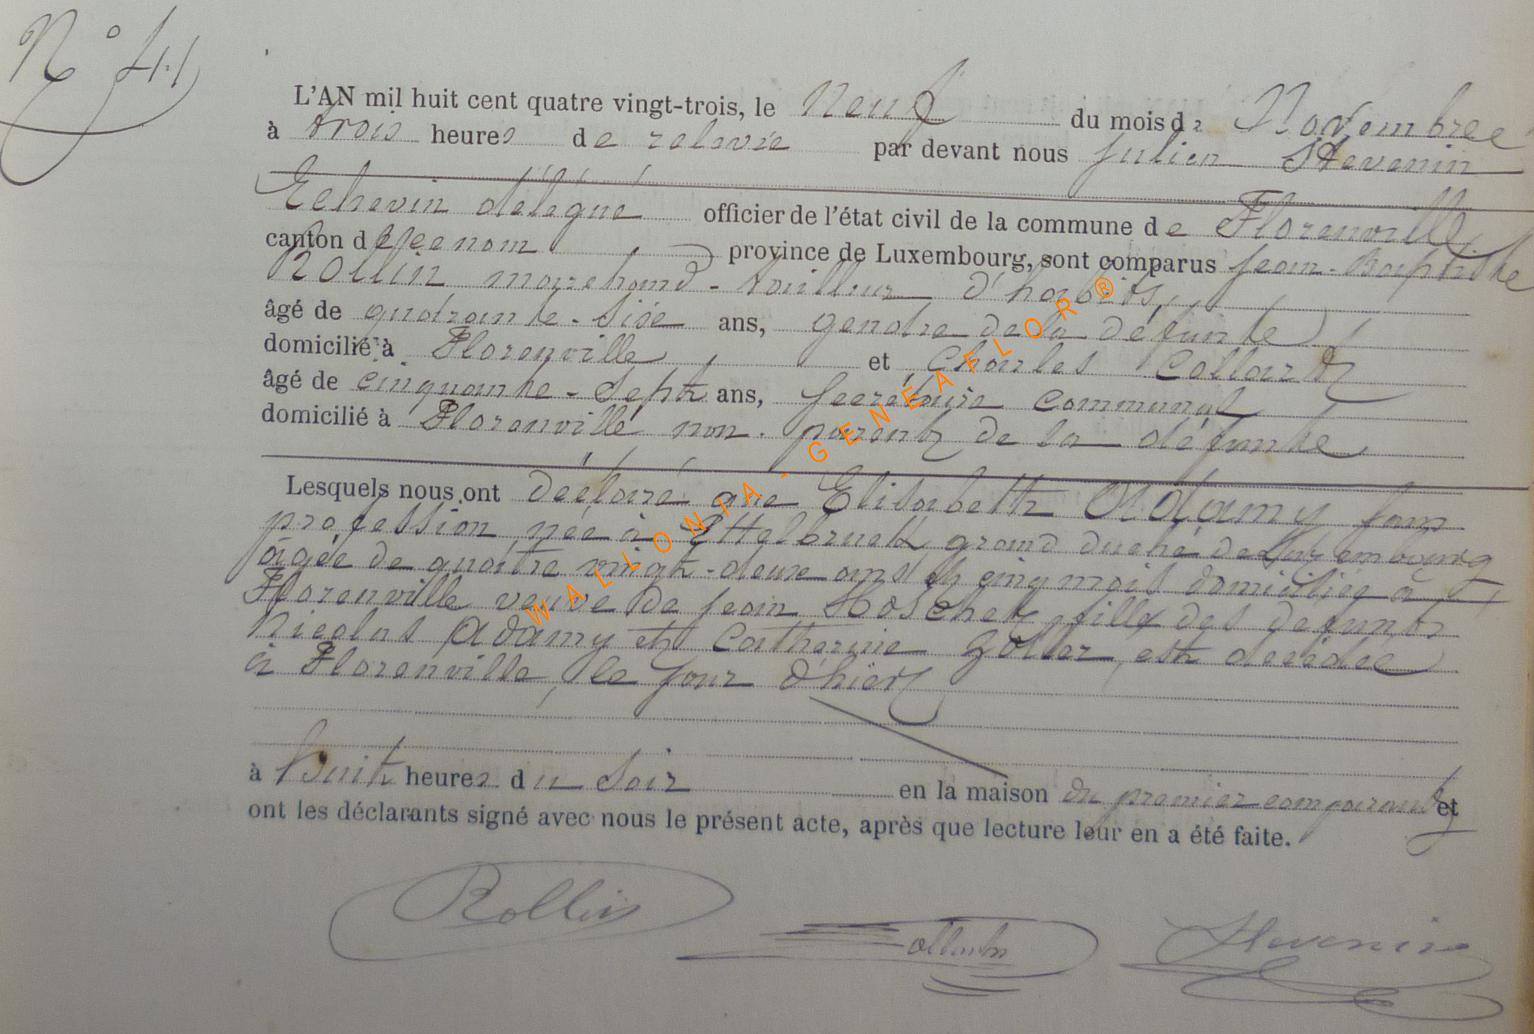 N° 41
L'AN mil huit cent quatre vingt-trois, le Neuf du mois de Novembre
à trois heures de relevée par devant nous Julien Stevenin
Echevin délégué officier de l'état civil de la commune de Florenville
canton de ce nom, province de Luxembourg, sont comparus Jean-Baptiste
Rollin marchand-tailleur d'habits,
âgé de quatrante-sise ans, gendre de la défunte,
domicilié à Florenville, et Charles Collart
âgé de cinquante-sept ans, secrétaire communal
domicilié à Florenville non parent de la défunte,
Lesquels nous ont déclaré que Elisabeth Adamy sans
profession née à Ettelbruck grand duché de Luxembourg
âgée de quatre vingt-deux ans et cinq mois domiciliée à
Florenville veuve de Jean Hoscheit, fille des defunts
Nicolas Adamy et Catherine Goller, est décédée
à Florenville, le jour d'hier
à huit heures du soir en la maison du premier comparant et
ont les déclarants signé avec nous le présent acte, après que lecture leur en a été faite.
Rollin Collart Stevenin
WALLONIA - GENEAFLOR ®